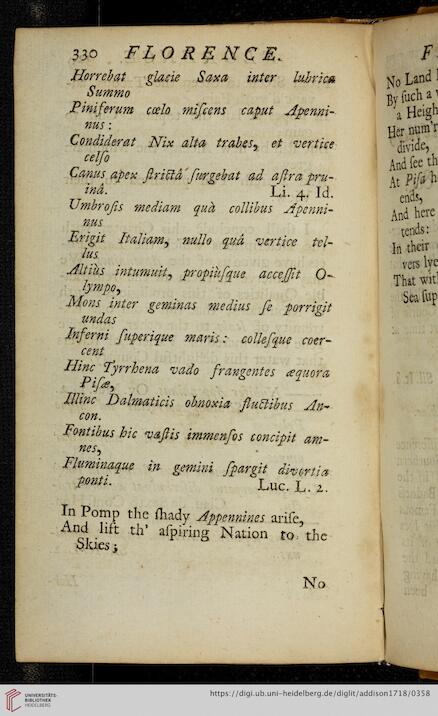 330 FLORENCE.
Horrebat glacie Saxa inter lubrica
Summo
Piniferum cælo miſcens caput Apenni-
nus:
Condiderat Nix alta trabes, et vertice
celſo
Canus apex ſtrictâ ſurgebat ad aſtra pru-
inâ. Li. 4. Id.
Umbroſis mediam quà collibus Apenni-
nus
Erigit Italiam, nullo quâ vertice tel-
lus
Altiùs intumuit, propiùſque acceſſit O-
lympo,
Mons inter geminas medius ſe porrigit
undas
Inferni ſuperique maris: colleſque coer-
cent
Hinc Tyrrhena vado frangentes æquora
Piſæ,
Illinc Dalmaticis obnoxia fluctibus An-
con.
Fontibus hic vaſtis immenſos concipit am-
nes,
Fluminaque in gemini ſpargit divortia
ponti. Luc. L. 2.
In Pomp the ſhady Appennines ariſe,
And lift th' aſpiring Nation to the
Skies;
No
F
No Land
By ſuch a
a Heigh
Her num'r
divide,
And ſee th
At Piſa h
ends,
And here
tends:
In their
vers lye
That wit
Sea ſup
UNIVERSITÄTS-
BIBLIOTHEK
HEIDELBERG
https://digi.ub.uni-heidelberg.de/diglit/addison1718/0358
© Universitätsbibliothek Heidelberg